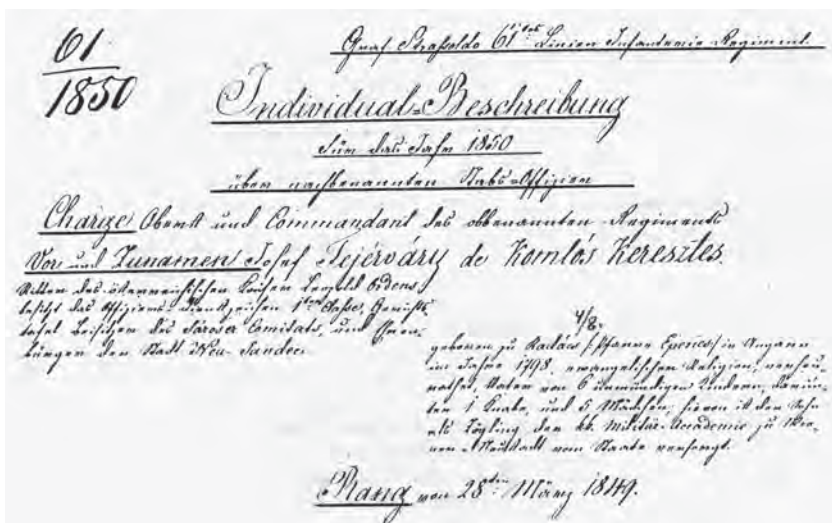 61
1850
Graf Straſsoldo 61tes Linien Infanterie Regiment.
Individual=Beschreibung
Für das Jahr 1850
über nachbenannten Stabs=Offizier
Charge Oberst und Commandant des obbenannten Regiments
Vor und Zunamen Josef Fejérváry de Komlós Keresztes.
Ritter des österreichischen Kaiser Leopold Ordens,
besitzt das Offiziers Dienstzeichen 1ter Classe, Gerichts
tafel Beisitzer des Sároser Comitats, und Ehren-
bürger der Stadt Neu Sandec.
4/8.
geboren zu Radács /: Pfarre Eperies :/ in Ungarn
im Jahre 1798, evangelischer Religion, verheu-
rathet, Vater von 6 unmündigen Kindern, darun-
ter 1 Knabe, und 5 Mädchen, hievon ist der Sohn
als Zögling der kk. Militär-Academie zu Wie-
ner-Neustadt vom Staate versorgt.
Rang vom 28ten März 1849.